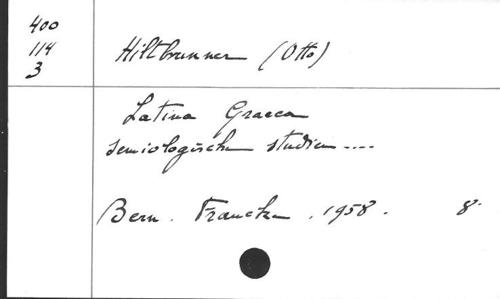 400
114
3
Hiltbrunner (Otto)
Latina Graeca
semiologische studien ....
Bern. Francke. 1958. 8°